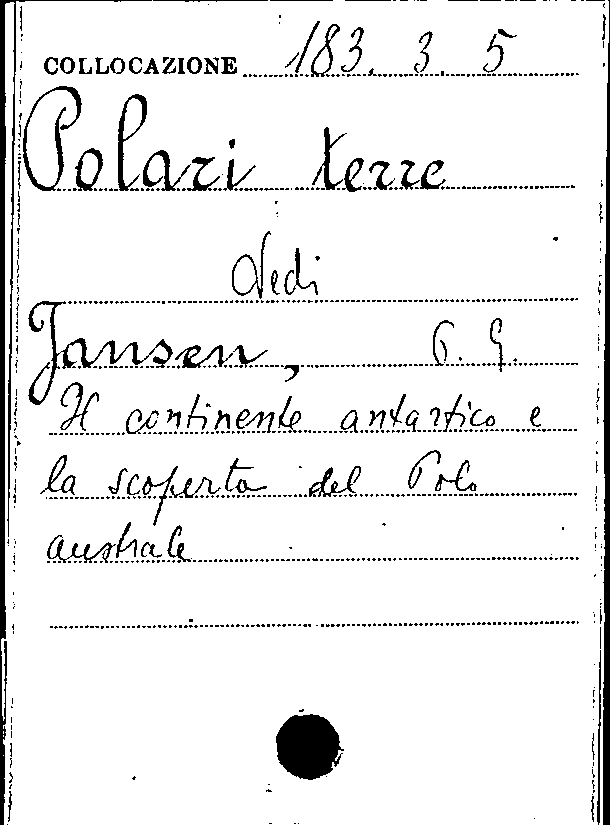 COLLOCAZIONE 183. 3. 5
Polari terre
Vedi
Jansen, P. G.
Il continente antartico e
la scoperta del Polo
australe